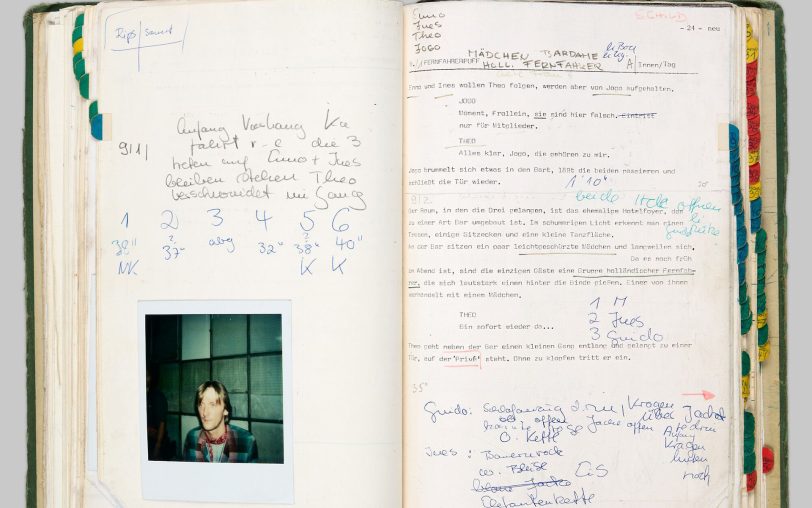 Rips / Samt
9/1/
Anfang Vorhang Ka
fährt r-l die 3
treten auf Enno + Ines
bleiben stehen Theo
verschwindet im Gang
1 2 3 4 5 6
38" ? 37" abg 32" ? 38" 40"
NK K K
Enno
Ines
Theo
Jogo
- 24 - neu
MÄDCHEN BARDAME
9./1 FERNFAHRERPUFF HOLL. FERNFAHRER A Innen/Tag
Enno und Ines wollen Theo folgen, werden aber von Jogo aufgehalten.
JOGO
Moment, Frollein, sie sind hier falsch, eintritt
nur für Mitglieder.
THEO
Alles klar, Jogo, die gehören zu mir.
Jogo brummelt sich etwas in den Bart, läßt die beiden passieren und
schließt die Tür wieder.
1'10"
20"
9/2
beide offen
Der Raum, in den die Drei gelangen, ist das ehemalige Hotelfoyer, das
zu einer Art Bar umgebaut ist. Im schummrigen Licht erkennt man einen
Tresen, einige Sitzecken und eine kleine Tanzfläche.
An der Bar sitzen ein paar leichtgeschürzte Mädchen und langweilen sich.
Da es noch früh
am Abend ist, sind die einzigen Gäste eine Gruppe holländischer Fernfah-
rer, die sich lautstark einen hinter die Binde gießen. Einer von ihnen
verhandelt mit einem Mädchen.
1 M
THEO
2 Ines
Bin sofort wieder da...
3 Guido
Theo geht neben der Bar einen kleinen Gang entlang und gelangt zu einer
Tür, auf der 'Privat' steht. Ohne zu klopfen tritt er ein.
35"
Guido: Schlafanzug drun, Kragen
offen über Jacke
Jacke offen
O. Kette
Anfang
Kragen
hinten
hoch
Ines: Bauernrock
w. Bluse
blaue Jacke
Elefantenkette